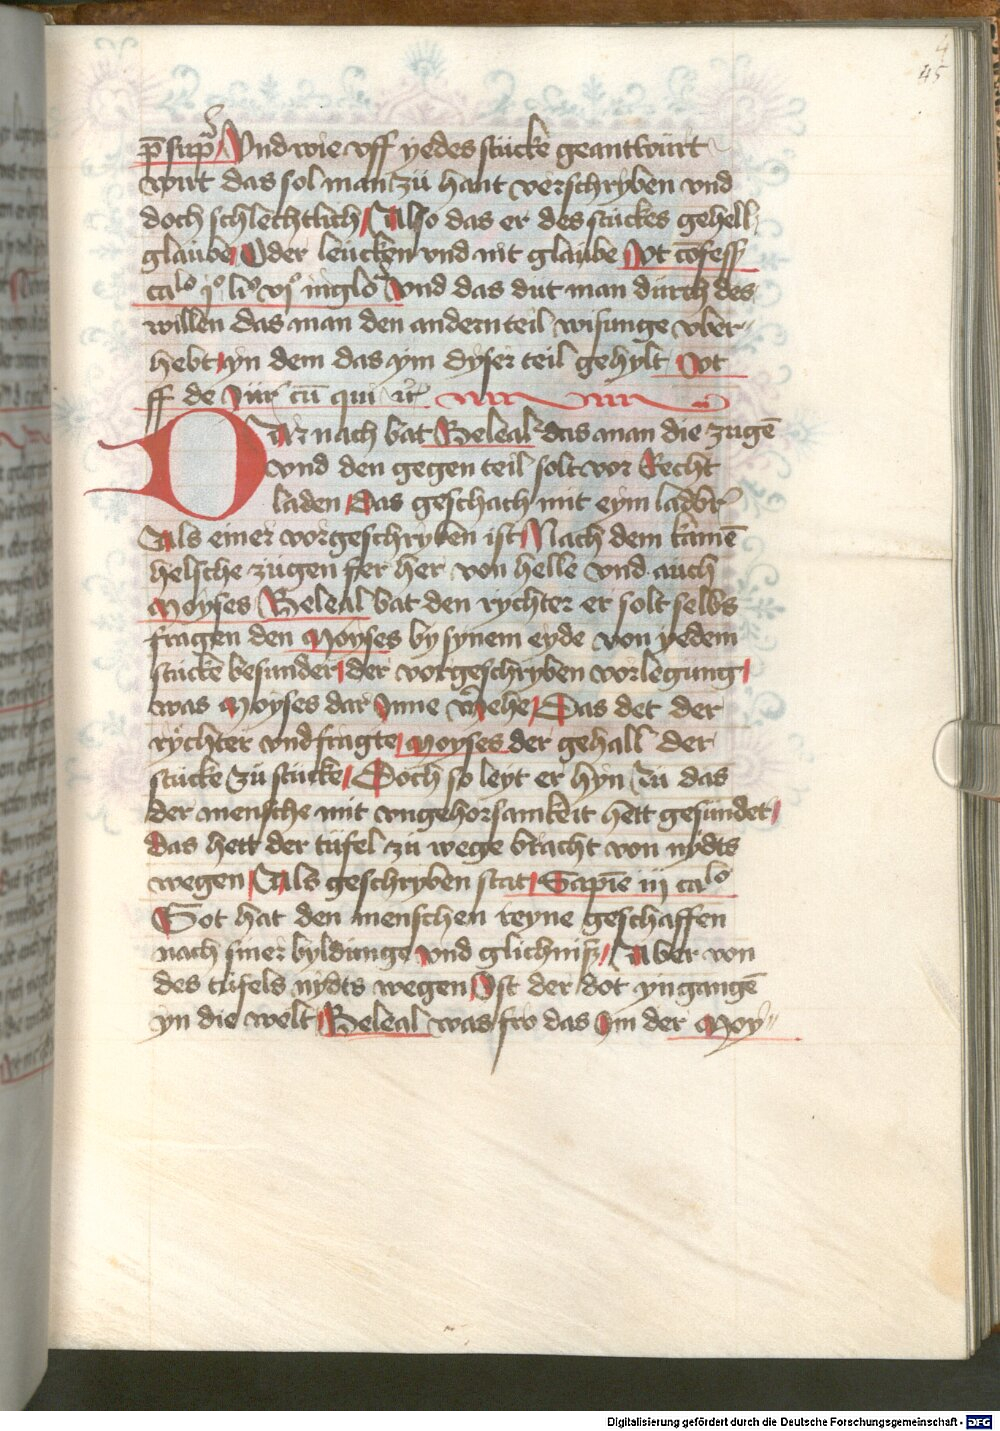 4
45
p̄ sup̄ Vnd wie vff yedes stücke geantwürt
wirt das sol man zü hant verschryben vnd
doch schlechtlich Also das er des stückes gehell
glaube Oder leücken vnd nit glaübe Vt cōfess
ca^lo j^o li^o vj^o in glo Vnd das düt man dürch des
willen das man den andern teil wisunge vber-
hebt yn dem das ym dyser teil gehylt Vt
ff de Jür cū qui
Dar nach bat Beleal das man die zügē
vnd den gegen teil solt vor Recht
laden Das geschach mit eym ladbr
Als einer vorgeschryben ist Nach dem kamē
helsche zügen fer her von helle vnd auch
Moyses Beleal bat den rychter er solt selbs
fragen den Moyses by synem eyde von yedem
stücke besunder der vorgeschryben vorlegung
was Moyses dar Jnne v̄iehe Das det der
rychter vnd fragte Moyses der gehall der
stücke zü stücke Doch so leyt er hyn zü das
der mensche mit vngehorsamkeit hett gesündet
das hett der tüfel zü wege bracht von nydts
wegen Als geschryben stat Sapiē iij ca^lo
Got hat den menschen reyne geschaffen
nach siner byldünge vnd glichniß Aber von
des tüfels nydts wegen Jst der dot yngangē
yn die welt Beleal was fro das Jm der Moy-
Digitalisierung gefördert durch die Deutsche Forschungsgemeinschaft - DFG